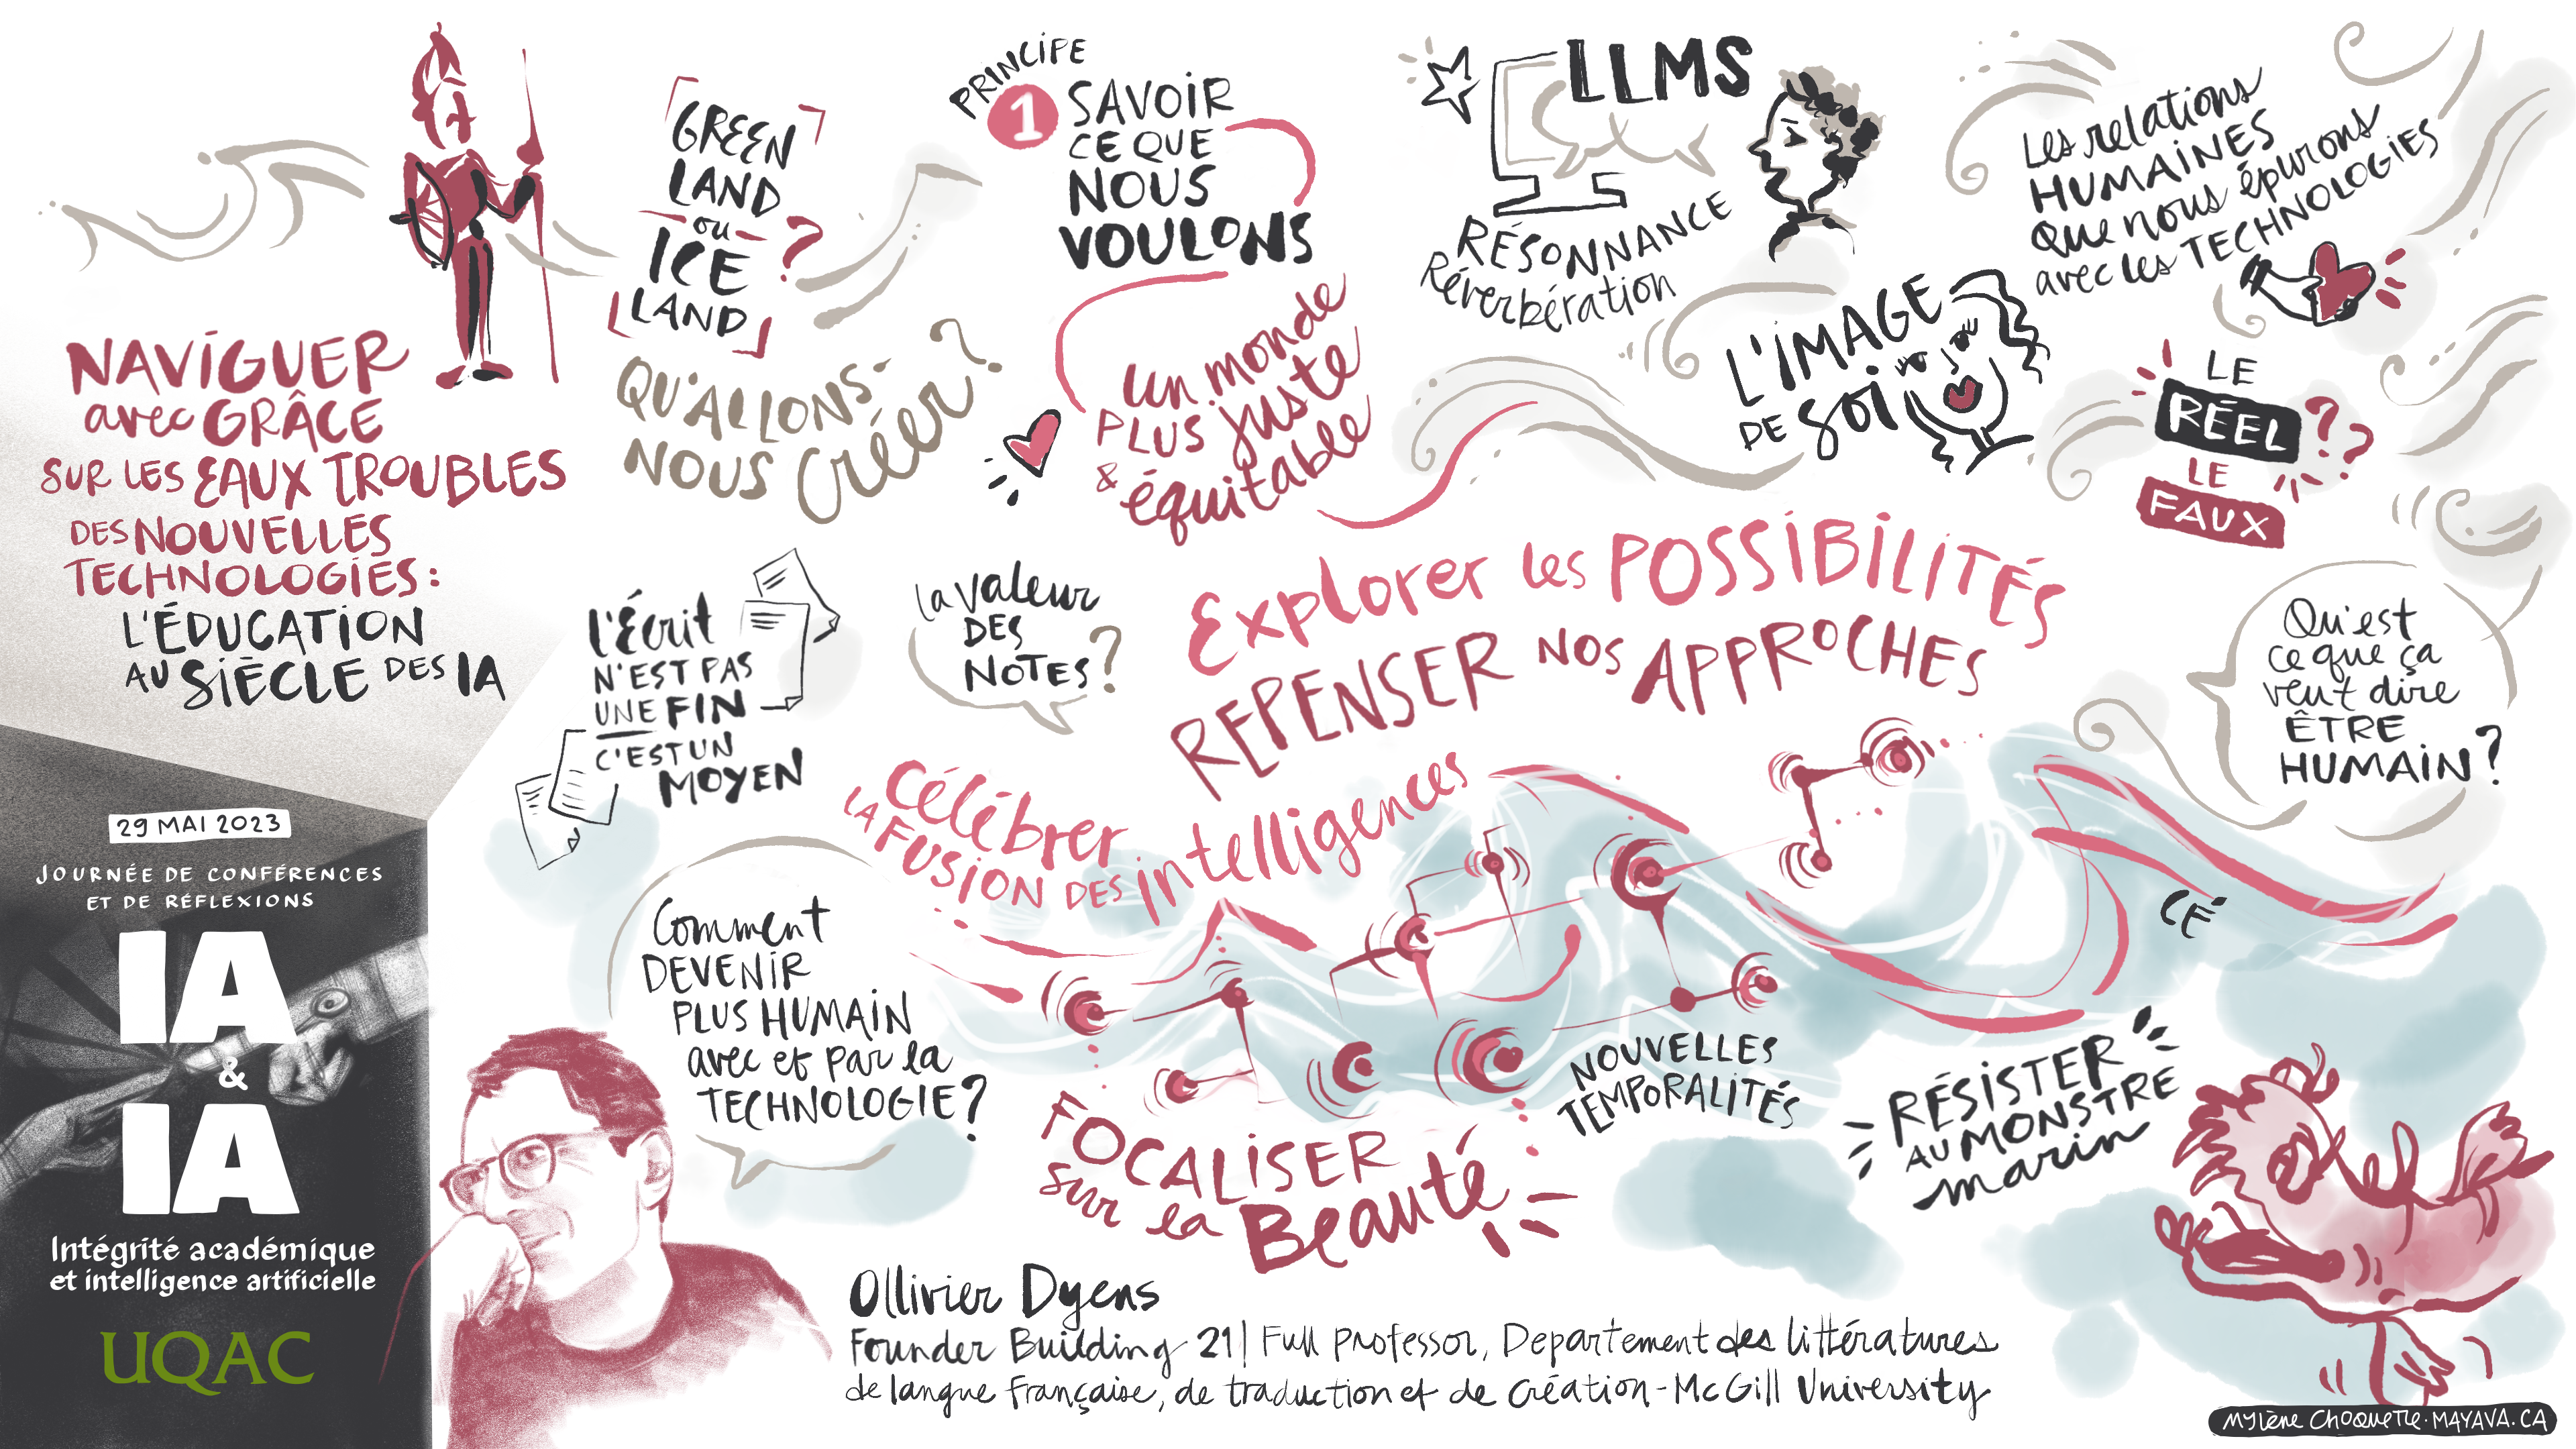 NAVIGUER
avec GRÂCE
SUR LES EAUX TROUBLES
DES NOUVELLES
TECHNOLOGIES :
L'ÉDUCATION
AU SIÈCLE DES IA
29 MAI 2023
JOURNÉE DE CONFÉRENCES
ET DE RÉFLEXIONS
IA
&
IA
Intégrité académique
et intelligence artificielle
UQAC
GREEN
LAND
ou
ICE
LAND
?
QU'ALLONS-
NOUS créer ?
PRINCIPE
1
SAVOIR
CE QUE
NOUS
VOULONS
un monde
PLUS juste
& équitable
LLMS
RÉSONNANCE
Réverbération
L'IMAGE
DE soi
Les relations
HUMAINES
que nous épurons
avec les TECHNOLOGIES
LE
RÉEL
LE
FAUX
??
l'Écrit
N'EST PAS
UNE FIN
C'EST UN
MOYEN
la valeur
DES
NOTES ?
Explorer les POSSIBILITÉS
REPENSER NOS APPROCHES
Célébrer
LA FUSION DES intelligences
Qu'est
ce que ça
veut dire
ÊTRE
HUMAIN ?
Comment
DEVENIR
PLUS HUMAIN
avec et par la
TECHNOLOGIE ?
CÉ
FOCALISER
sur la Beauté
NOUVELLES
TEMPORALITÉS
RÉSISTER
AU MONSTRE
marin
Ollivier Dyens
Founder Building 21 | Full Professor, Departement des littératures
de langue française, de traduction et de création - McGill University
MYLÈNE CHOQUETTE · MAYAVA.CA